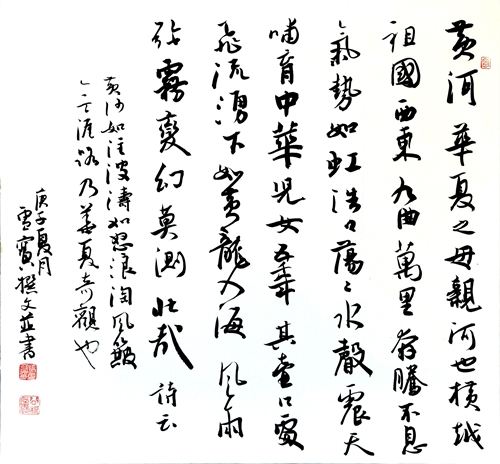 黄河華夏之母親河也橫越
祖國西東九曲萬里奔騰不息
氣勢如虹浩浩蕩蕩水聲震天
哺育中華兒女五千年其壺口處
飛流湧下如黄龍入海風雨
雷霧變幻莫測壯哉詩云
黄河如注波濤如怒浪淘風簸
天涯路乃華夏奇觀也
庚子夏月
雪賓撰文並書